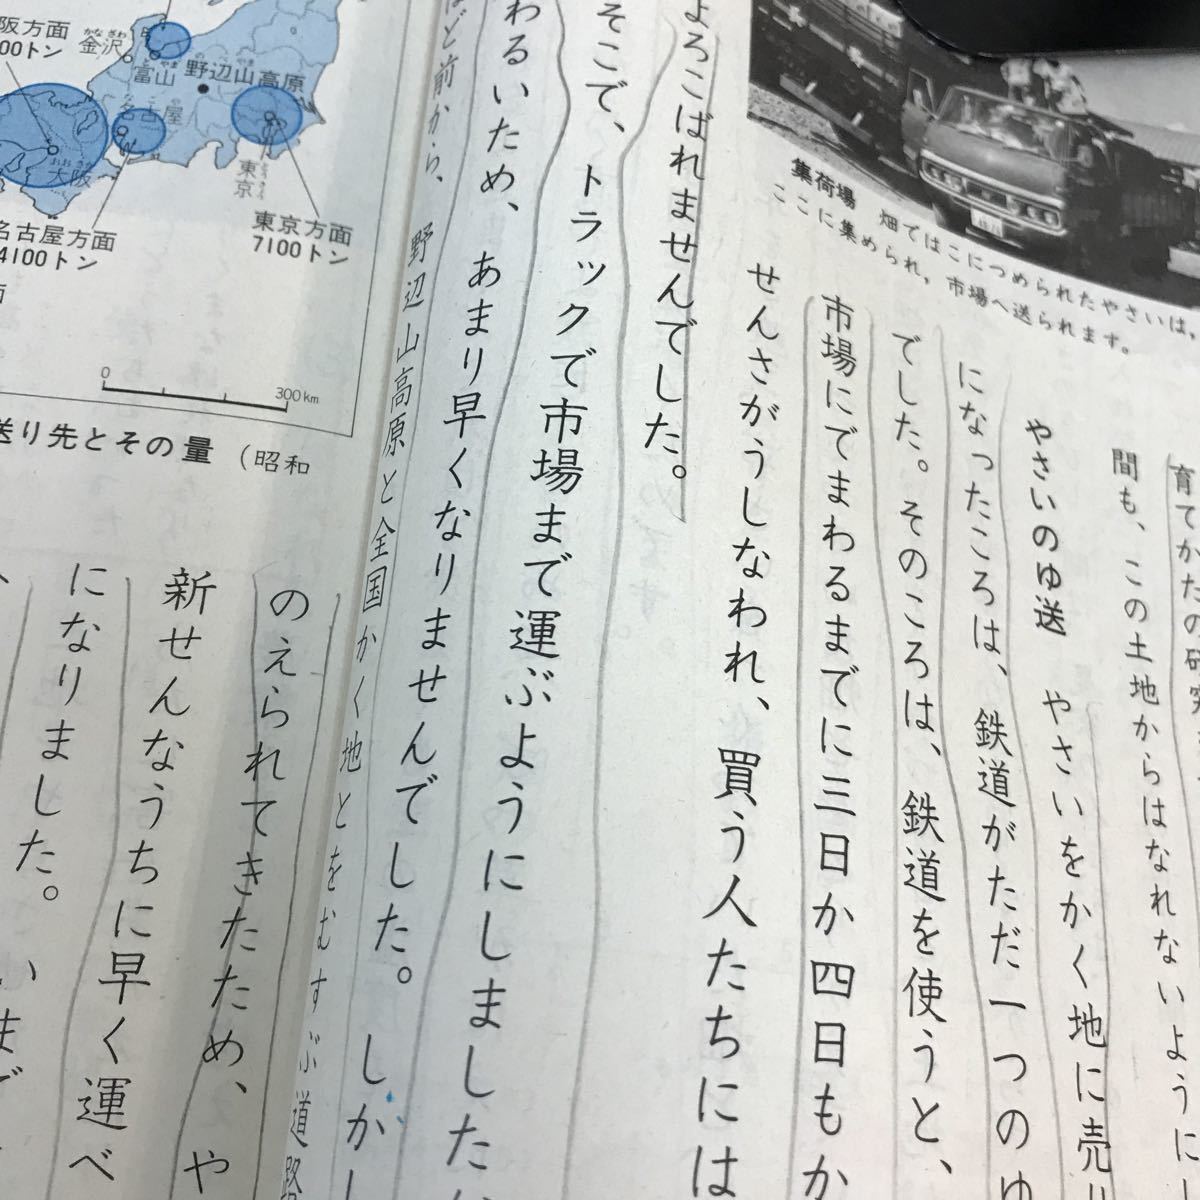 集荷場　畑ではこにつめられたやさいは，
ここに集められ，市場へ送られます。
育てかたの研究
間も、この土地からはなれないように
やさいのゆ送　やさいをかく地に売り
になったころは、鉄道がただ一つのゆ
でした。そのころは、鉄道を使うと、
市場にでまわるまでに三日か四日もか
せんさがうしなわれ、買う人たちには
よろこばれませんでした。
そこで、トラックで市場まで運ぶようにしましたが
わるいため、あまり早くなりませんでした。しかし
ほど前から、野辺山高原と全国かく地とをむすぶ道路
のえられてきたため、や
新せんなうちに早く運べ
になりました。いまで
阪方面
00トン
かなざわ
金沢
富山
野辺山高原
名古屋
おおさか
大阪
東京
名古屋方面
4100トン
東京方面
7100トン
0
300km
送り先とその量（昭和